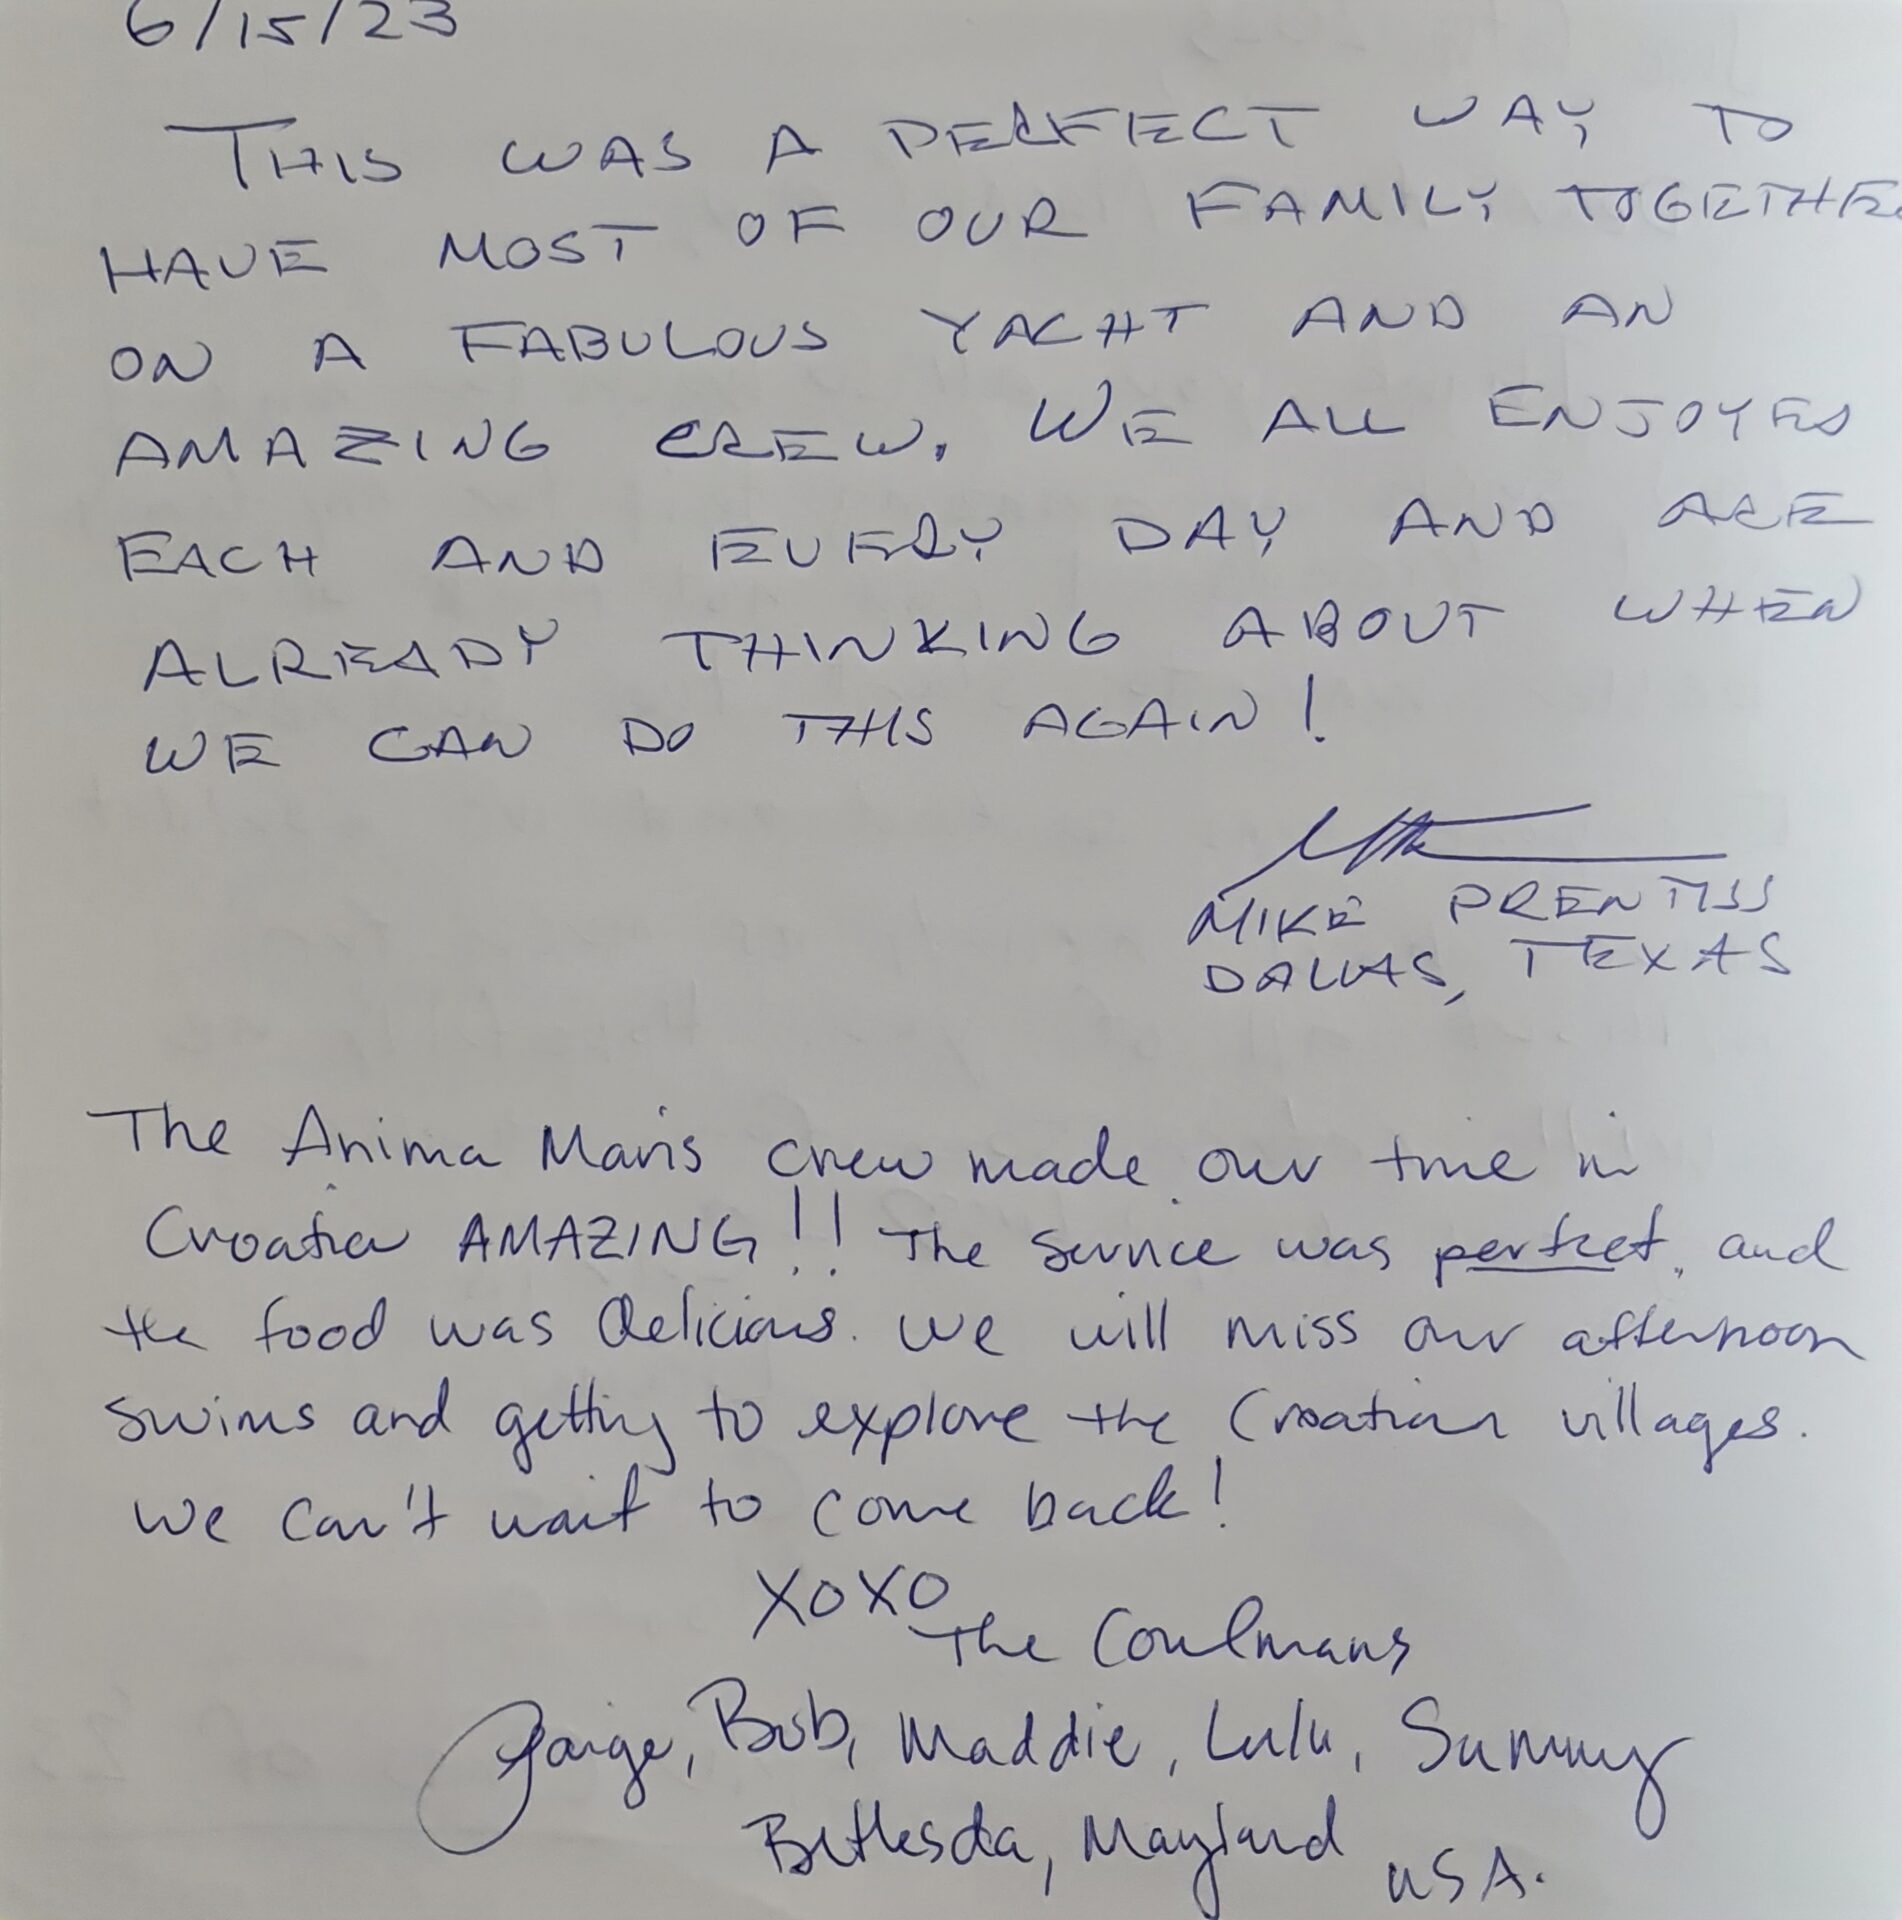 6/15/23
THIS WAS A PERFECT WAY TO
HAVE MOST OF OUR FAMILY TOGETHE
ON A FABULOUS YACHT AND AN
AMAZING CREW. WE ALL ENJOYED
EACH AND EVERY DAY AND ARE
ALREADY THINKING ABOUT WHEN
WE CAN DO THIS AGAIN!
MIKE PRENTISS
DALLAS, TEXAS
The Anima Maris crew made our time in
Croatia AMAZING!! The service was perfect, and
the food was delicious. We will miss our afternoon
swims and getting to explore the Croatian villages.
We can't wait to come back!
XOXO
The Coulmans
Paige, Bob, Maddie, Lulu, Sammy
Bethesda, Maryland
USA.